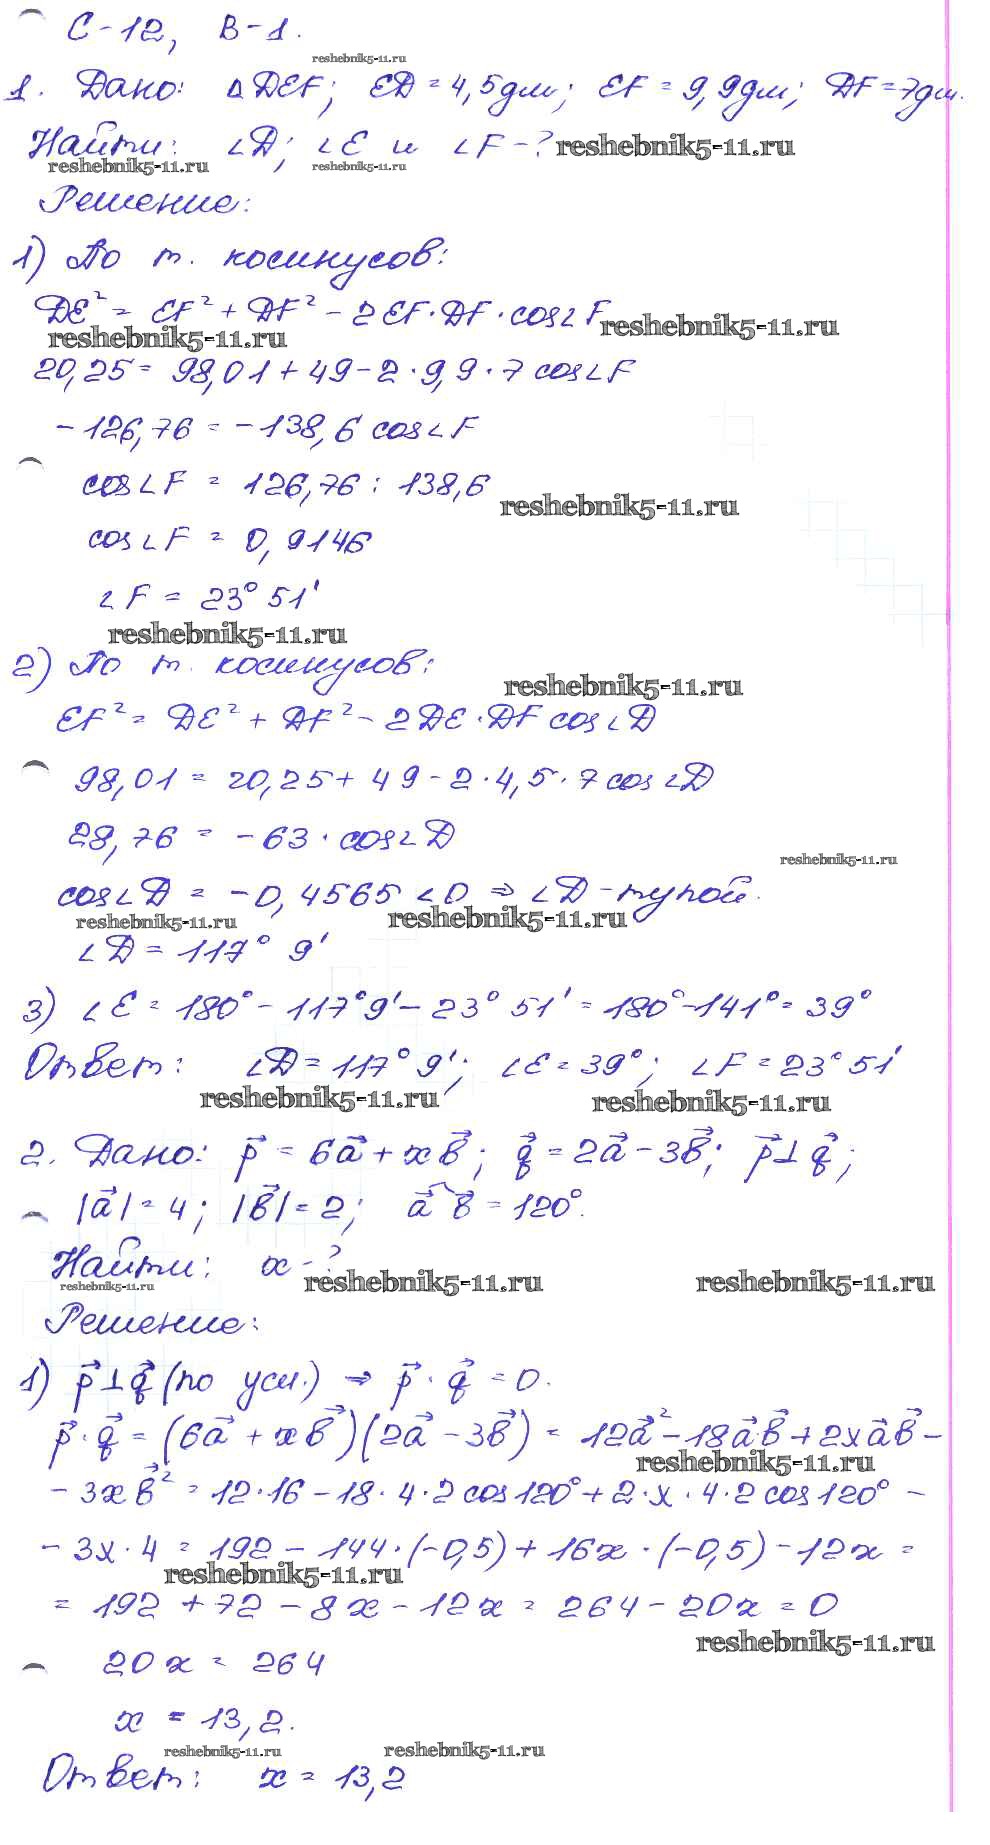 С-12, В-1.
reshebnik5-11.ru
1. Дано: △DEF; ED = 4,5дм; EF = 9,9дм; DF = 7дм.
Найти: ∠D; ∠E и ∠F - ? reshebnik5-11.ru
reshebnik5-11.ru reshebnik5-11.ru
Решение:
1) По т. косинусов:
DE² = EF² + DF² - 2EF·DF·cos∠F reshebnik5-11.ru
reshebnik5-11.ru
20,25 = 98,01 + 49 - 2·9,9·7 cos∠F
-126,76 = -138,6 cos∠F
cos∠F = 126,76 : 138,6
reshebnik5-11.ru
cos∠F = 0,9146
∠F = 23° 51'
reshebnik5-11.ru
2) По т. косинусов:
reshebnik5-11.ru
EF² = DE² + DF² - 2DE·DF cos∠D
98,01 = 20,25 + 49 - 2·4,5·7 cos∠D
28,76 = -63·cos∠D
reshebnik5-11.ru
cos∠D = -0,4565 ∠0 ⇒ ∠D - тупой.
reshebnik5-11.ru reshebnik5-11.ru
∠D = 117° 9'
3) ∠E = 180° - 117°9' - 23° 51' = 180° - 141° = 39°
Ответ: ∠D = 117° 9'; ∠E = 39°; ∠F = 23° 51'
reshebnik5-11.ru reshebnik5-11.ru
2. Дано: p⃗ = 6a⃗ + xb⃗; q⃗ = 2a⃗ - 3b⃗; p⃗ ⊥ q⃗;
|a⃗| = 4; |b⃗| = 2; a⃗^b⃗ = 120°.
Найти: x - ?
reshebnik5-11.ru reshebnik5-11.ru reshebnik5-11.ru
Решение:
1) p⃗ ⊥ q⃗ (по усл.) ⇒ p⃗ · q⃗ = 0.
p⃗ · q⃗ = (6a⃗ + xb⃗)(2a⃗ - 3b⃗) = 12a⃗² - 18a⃗·b⃗ + 2xa⃗b⃗ -
reshebnik5-11.ru
- 3xb⃗² = 12·16 - 18·4·2 cos120° + 2·x·4·2 cos120° -
- 3x·4 = 192 - 144·(-0,5) + 16x·(-0,5) - 12x =
reshebnik5-11.ru
= 192 + 72 - 8x - 12x = 264 - 20x = 0
reshebnik5-11.ru
20x = 264
x = 13,2.
reshebnik5-11.ru reshebnik5-11.ru
Ответ: x = 13,2